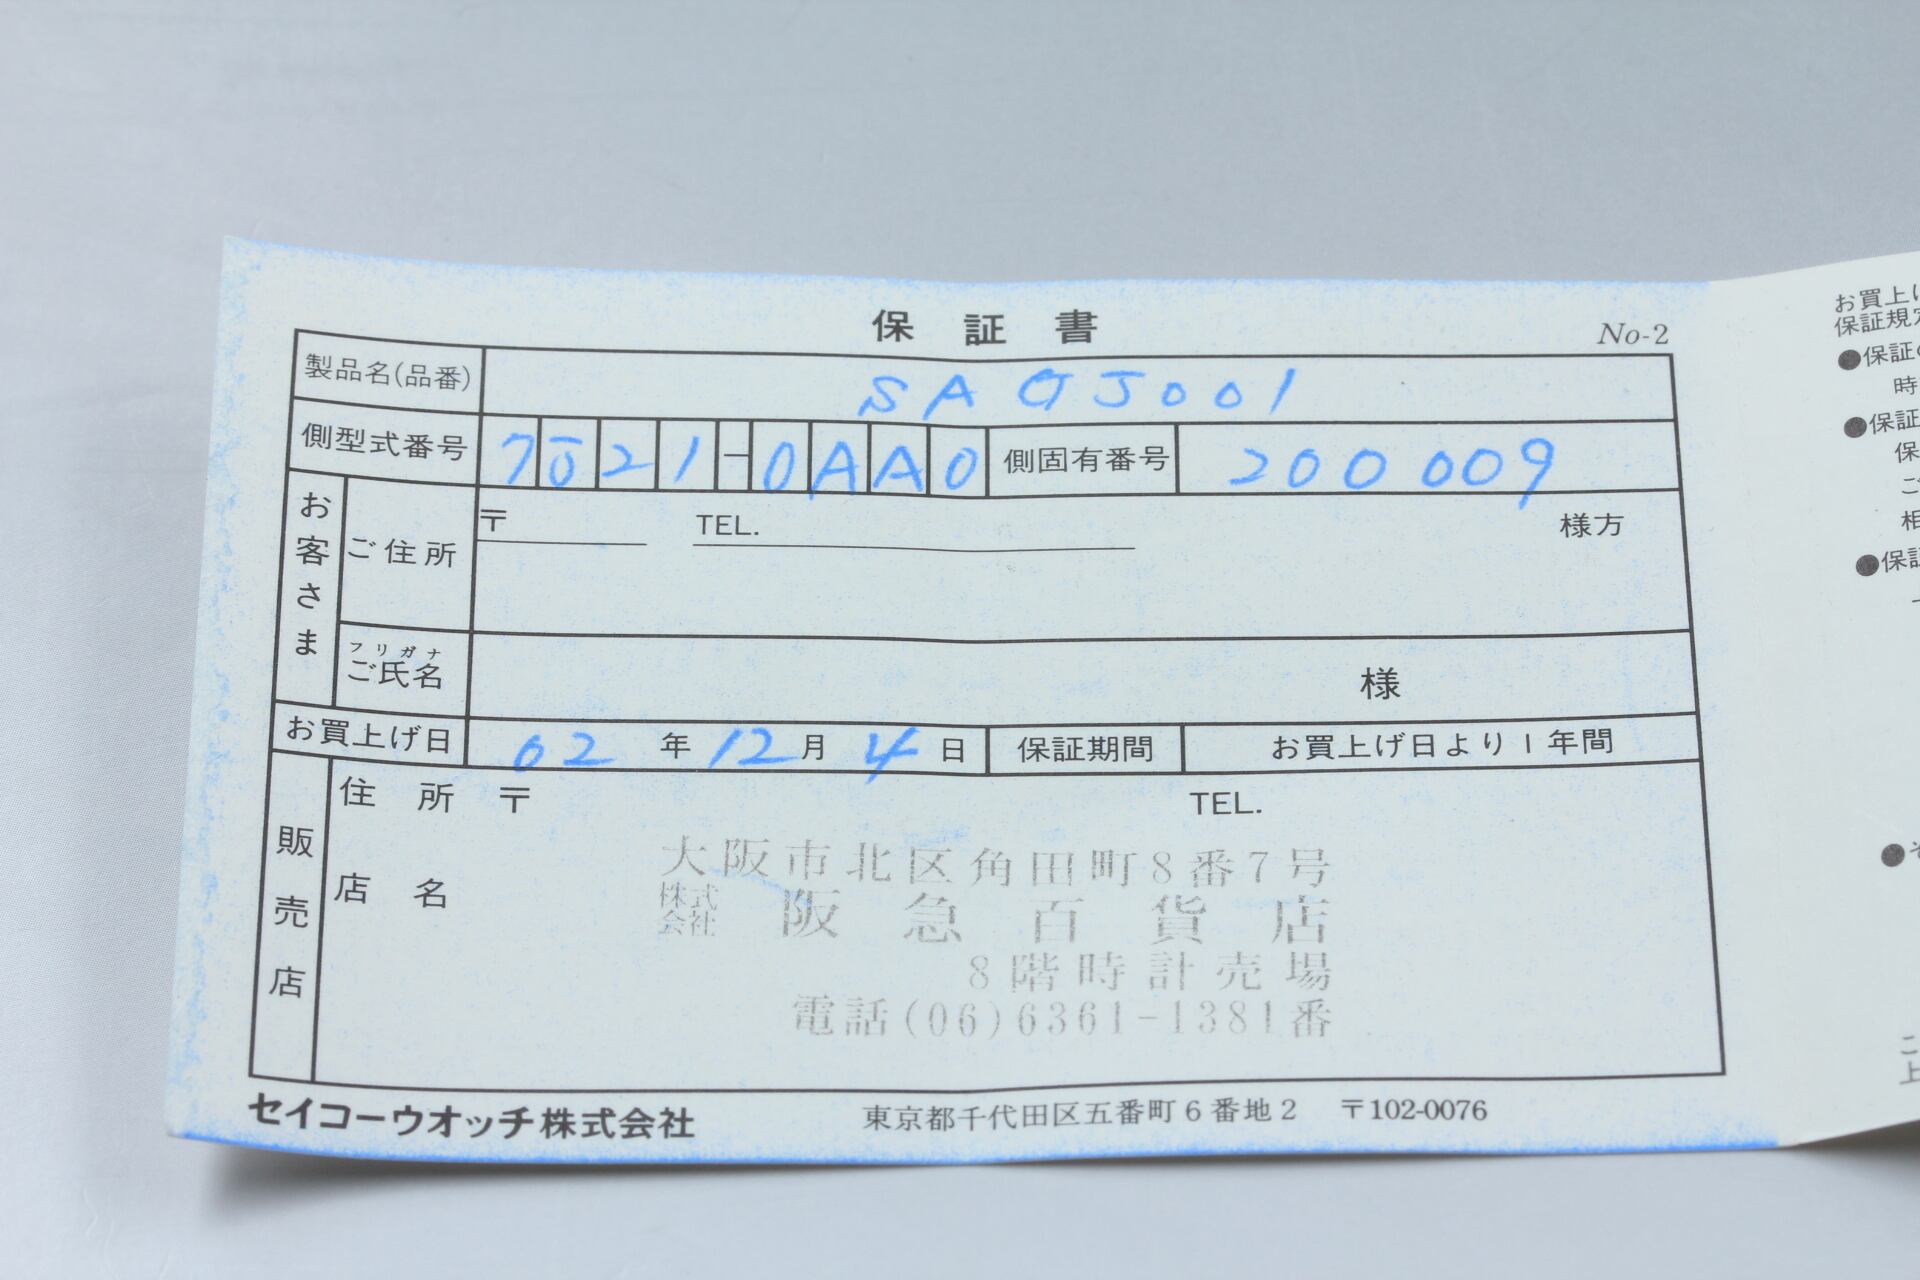 保証書
No-2
製品名(品番) SAGJ001
側型式番号 7021-0AA0 側固有番号 200009
お客さま
ご住所 〒 TEL. 様方
フリガナ
ご氏名 様
お買上げ日 02年12月4日 保証期間 お買上げ日より1年間
販売店
住所 〒 TEL.
大阪市北区角田町8番7号
店名 株式会社 阪急百貨店
8階時計売場
電話(06)6361-1381番
セイコーウオッチ株式会社 東京都千代田区五番町6番地2 〒102-0076
お買上げ
保証規定
●保証の
時
●保証
保
ご
相
●保証
●そ
こ
上